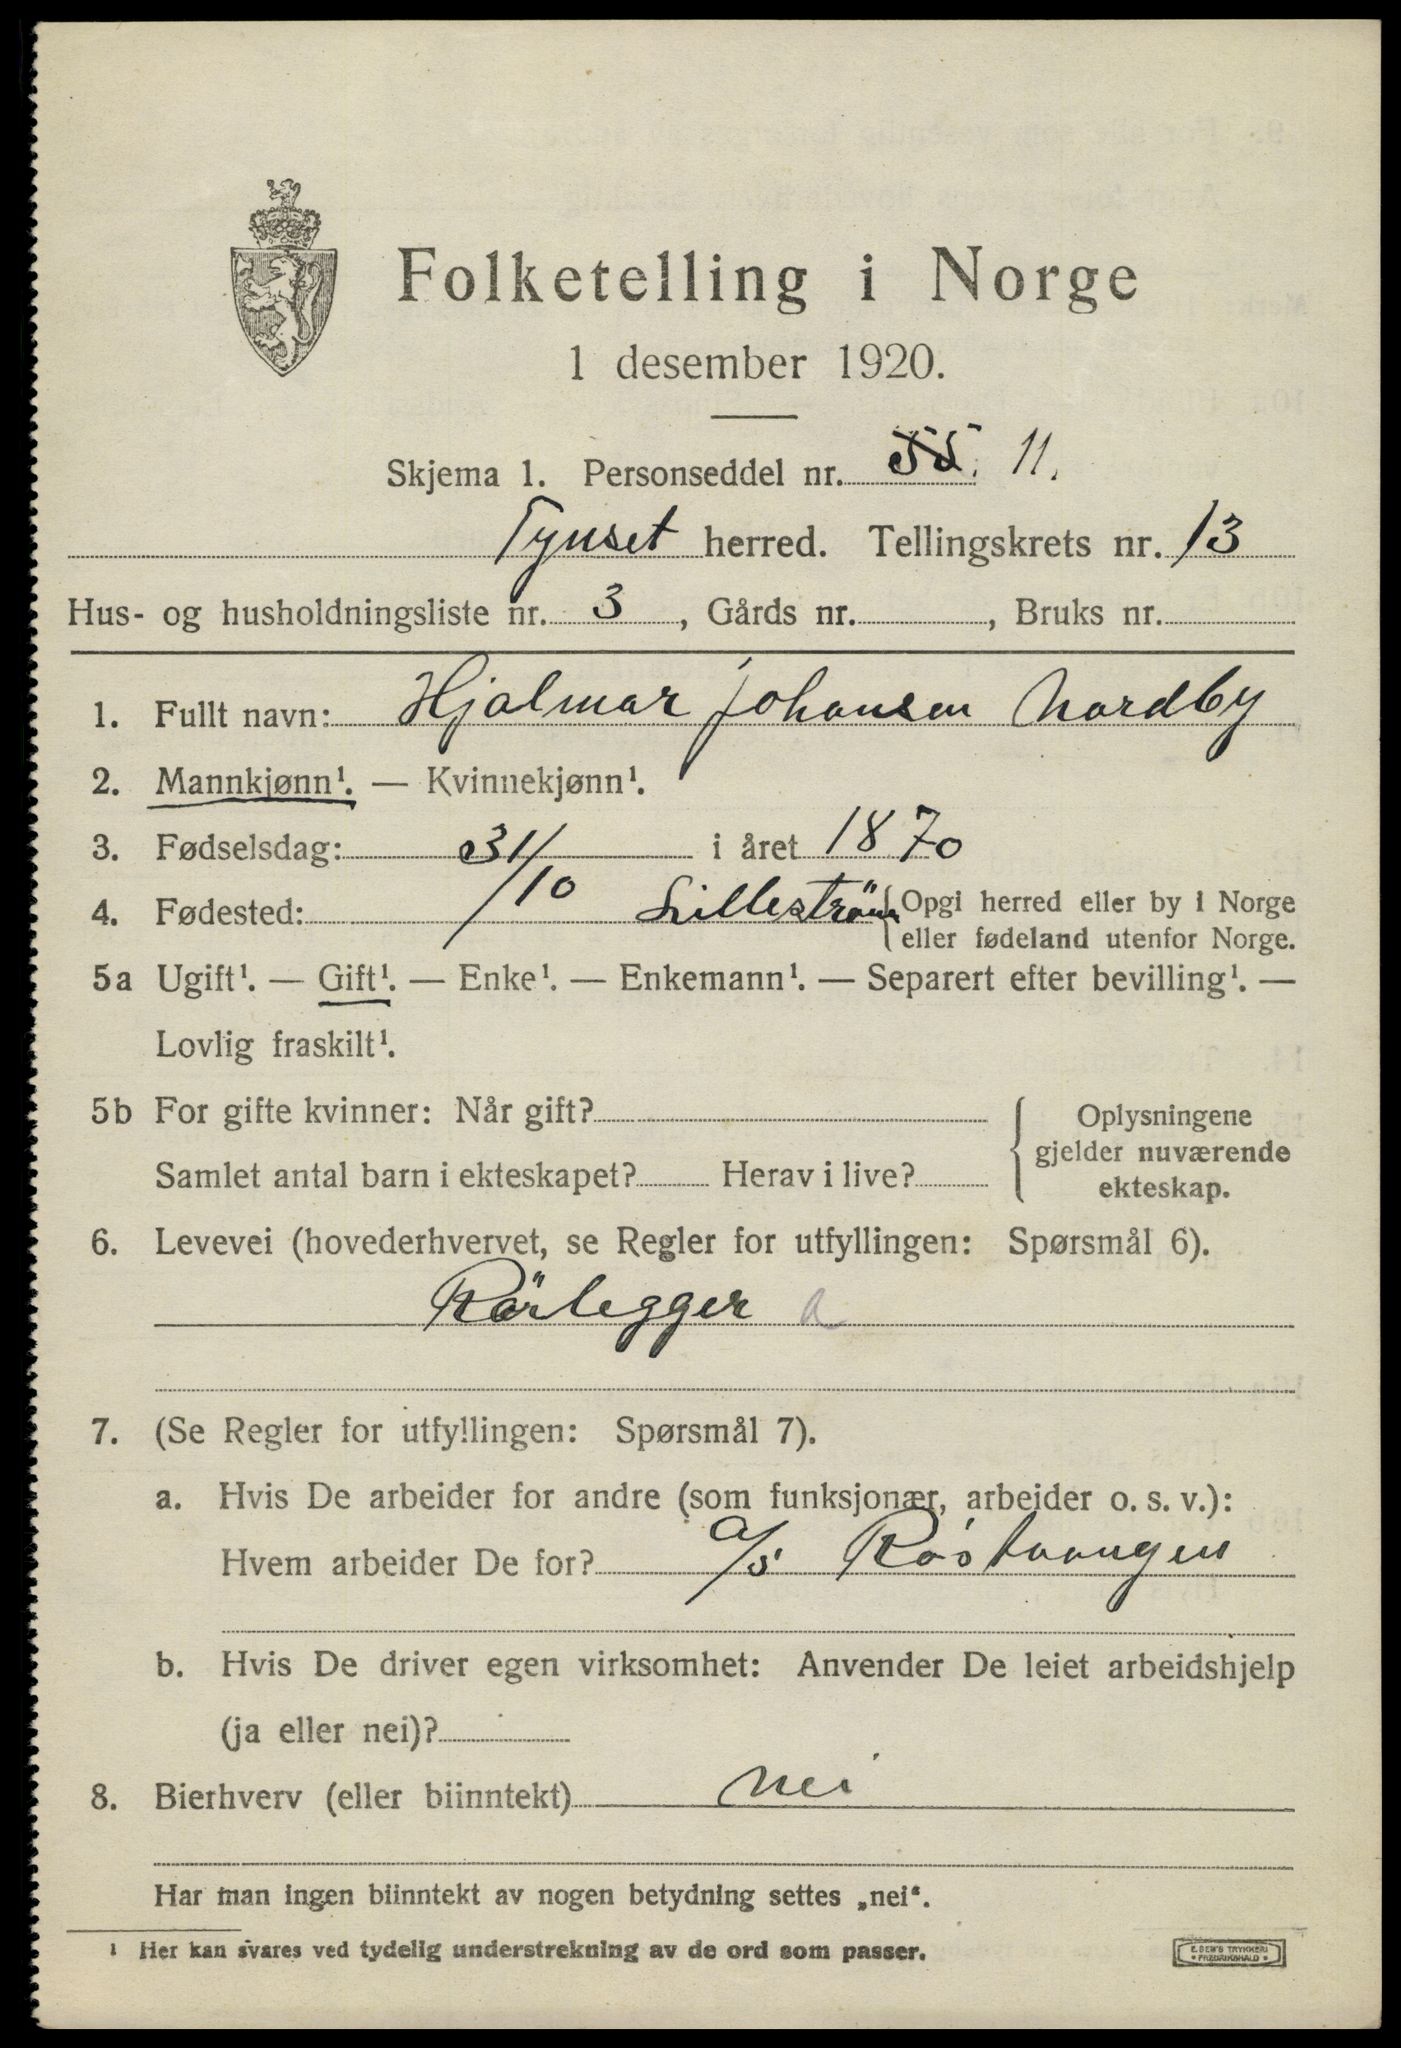 Folketelling i Norge
1 desember 1920.
Skjema 1. Personseddel nr. 11.
Tynset herred. Tellingskrets nr. 13
Hus- og husholdningsliste nr. 3, Gårds nr. , Bruks nr.
1. Fullt navn: Hjalmar Johansen Nordby
2. Mannkjønn¹. — Kvinnekjønn¹.
3. Fødselsdag: 31/10 i året 1870
4. Fødested: Lilleström {Opgi herred eller by i Norge
eller fødeland utenfor Norge.
5a Ugift¹. — Gift¹. — Enke¹. — Enkemann¹. — Separert efter bevilling¹. —
Lovlig fraskilt¹.
5b For gifte kvinner: Når gift?
Samlet antal barn i ekteskapet? Herav i live?
Oplysningene
gjelder nuværende
ekteskap.
6. Levevei (hovederhvervet, se Regler for utfyllingen: Spørsmål 6).
Rörlegger a
7. (Se Regler for utfyllingen: Spørsmål 7).
a. Hvis De arbeider for andre (som funksjonær, arbeider o. s. v.):
Hvem arbeider De for? a/s Röstvangen
b. Hvis De driver egen virksomhet: Anvender De leiet arbeidshjelp
(ja eller nei)?
8. Bierhverv (eller biinntekt) nei
Har man ingen biinntekt av nogen betydning settes „nei“.
¹ Her kan svares ved tydelig understrekning av de ord som passer.
E. SEM'S TRYKKERI
• FREDRIKSHALD •